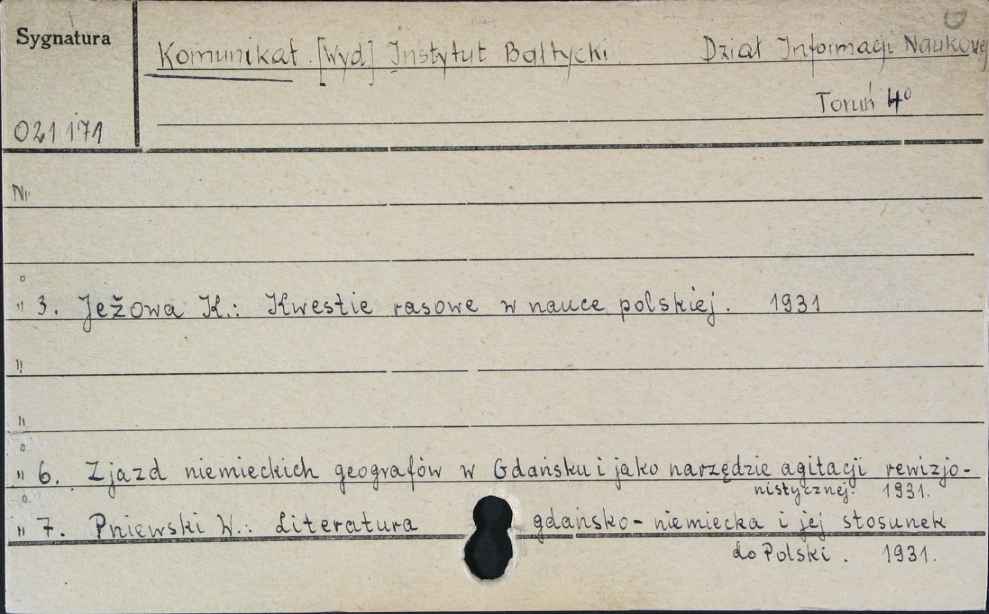 Sygnatura
Komunikat. [Wyd] Instytut Bałtycki Dział Informacji Naukowej
Toruń 4°
021 171
Nr
" 3. Jeżowa K.: Kwestie rasowe w nauce polskiej. 1931
"
"
" 6. Zjazd niemieckich geografów w Gdańsku i jako narzędzie agitacji rewizjo-
nistycznej. 1931.
" 7. Pniewski W.: Literatura gdańsko-niemiecka i jej stosunek
do Polski. 1931.